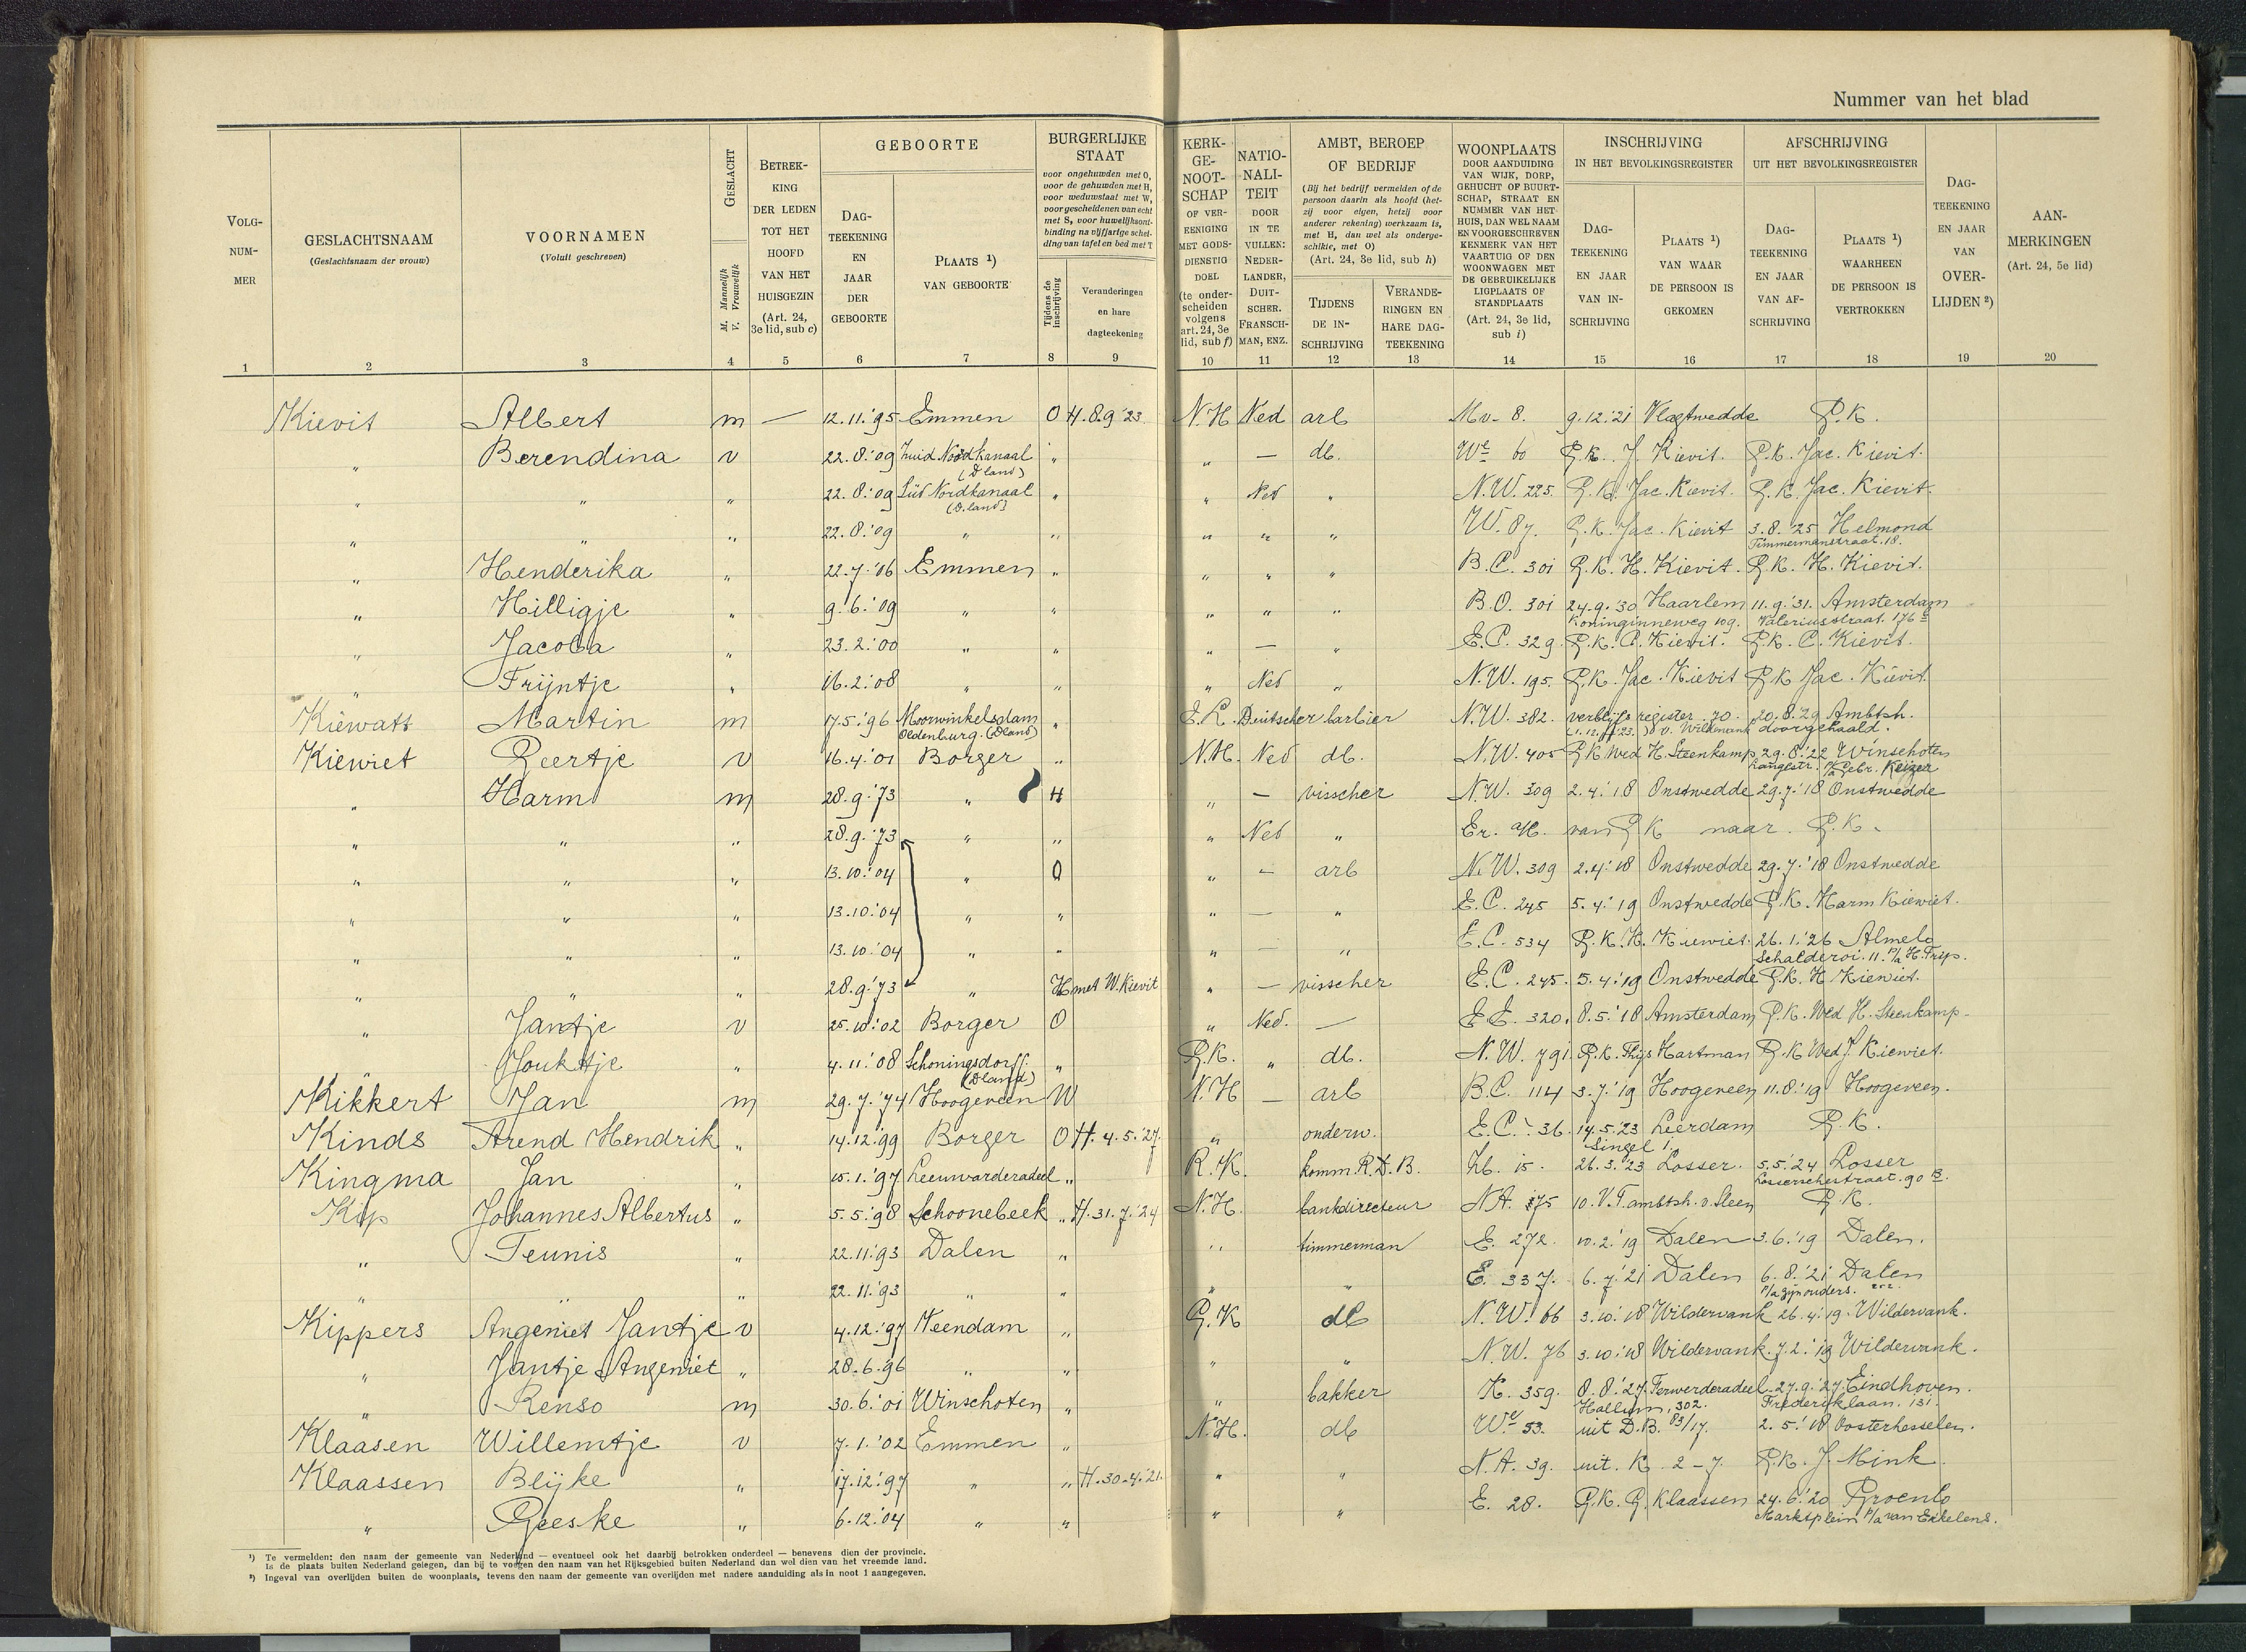 Nummer van het blad
VOLG-NUM-MER
GESLACHTSNAAM (Geslachtsnaam der vrouw)
VOORNAMEN (Voluit geschreven)
GESLACHT M. Mannelijk V. Vrouwelijk
BETREK-KING DER LEDEN TOT HET HOOFD VAN HET HUISGEZIN (Art. 24, 3e lid, sub c)
GEBOORTE
DAG-TEEKENING EN JAAR DER GEBOORTE
PLAATS ¹) VAN GEBOORTE
BURGERLIJKE STAAT
voor ongehuwden met O, voor de gehuwden met H, voor weduwstaat met W, voor gescheidenen van echt met S, voor huwelijksont-binding na vijfjarige schei-ding van tafel en bed met T
Tijdens de inschrijving
Veranderingen en hare dagteekening
KERK-GE-NOOT-SCHAP OF VER-EENIGING MET GODS-DIENSTIG DOEL (te onder-scheiden volgens art. 24, 3e lid, sub f)
NATIO-NALI-TEIT DOOR IN TE VULLEN: NEDER-LANDER, DUIT-SCHER, FRANSCH-MAN, ENZ.
AMBT, BEROEP OF BEDRIJF
(Bij het bedrijf vermelden of de persoon daarin als hoofd (het-zij voor eigen, hetzij voor anderer rekening) werkzaam is, met H, dan wel als onderge-schikte, met O) (Art. 24, 3e lid, sub h)
TIJDENS DE IN-SCHRIJVING
VERANDE-RINGEN EN HARE DAG-TEEKENING
WOONPLAATS DOOR AANDUIDING VAN WIJK, DORP, GEHUCHT OF BUURT-SCHAP, STRAAT EN NUMMER VAN HET HUIS, DAN WEL NAAM EN VOORGESCHREVEN KENMERK VAN HET VAARTUIG OF DEN WOONWAGEN MET DE GEBRUIKELIJKE LIGPLAATS OF STANDPLAATS (Art. 24, 3e lid, sub i)
INSCHRIJVING IN HET BEVOLKINGSREGISTER
DAG-TEEKENING EN JAAR VAN IN-SCHRIJVING
PLAATS ¹) VAN WAAR DE PERSOON IS GEKOMEN
AFSCHRIJVING UIT HET BEVOLKINGSREGISTER
DAG-TEEKENING EN JAAR VAN AF-SCHRIJVING
PLAATS ¹) WAARHEEN DE PERSOON IS VERTROKKEN
DAG-TEEKENING EN JAAR VAN OVER-LIJDEN ²)
AAN-MERKINGEN (Art. 24, 5e lid)
1 2 3 4 5 6 7 8 9 10 11 12 13 14 15 16 17 18 19 20
Kievit Albert m — 12.11.'95 Emmen O H.8.9'23 N.H Ned arb Mv. 8. 9.12.'21 Vlagtwedde G.K.
" Berendina v 22.8.'09 Zuid Noordkanaal (Dland) " " — db. We 60 G.K. J Kievit. G.K. Jac. Kievit.
" " " 22.8.'09 Süd Nordkanaal (D.land) " " Ned " N.W. 225. G.K. Jac. Kievit. G.K. Jac. Kievit.
" " " 22.8.'09 " " " " " W. 87. G.K. Jac. Kievit 3.8.'25 Helmond
Timmermanstraat. 18.
" Henderika " 22.7.'06 Emmen " " " " B.C. 301 G.K. H. Kievit. G.K. H. Kievit.
" Hilligje " 9.6.'09 " " " " " B.O. 301 24.9.'30 Haarlem 11.9.'31. Amsterdam
Koninginneweg 109. Valeriusstraat. 176
" Jacoba " 23.2.'00 " " " — " E.C. 329. G.K. C. Kievit. G.K. C. Kievit.
" Trijntje " 16.2.'08 " " " Ned " N.W. 195. G.K. Jac. Kievit G.K Jac. Kievit
Kiewatt Martin m 17.5.'96 Moorwinkelsdam Oldenburg. (Dland) " E.L. Deutscher barbier N.W. 382. verblijfsregister. 70. 20.8.'29 Ambtsh.
doorgehaald.
Kiewiet Geertje v 16.4.'01 Borger " N.H. Ned db. N.W. 405 G K Wed H. Steenkamp 29.8.'22 Winschoten
Langestr. p/a Gebr. Keizer
" Harm m 28.9.'73 " H " — visscher N.W. 309 2.4.'18 Onstwedde 29.7.'18 Onstwedde
" " " 28.9.'73 " " " Ned " van G K naar G.K.
" " " 13.10.'04 " O " — arb N.W. 309 2.4.'18 Onstwedde 29.7.'18 Onstwedde
" " " 13.10.'04 " " " — " E.C. 245 5.4.'19 Onstwedde G.K. Harm Kiewiet.
" " " 13.10.'04 " " " — " E.C. 534 G.K. H. Kiewiet. 26.1.'26 Almelo
Schalderoi. 11. p/a H. Trip.
" " " 28.9.'73 " H met W. Kievit " — visscher E.C. 245. 5.4.'19 Onstwedde G.K. H Kiewiet.
" Jantje v 25.10.'02 Borger O " Ned. — E.E. 320. 8.5.'18 Amsterdam G.K. Wed H. Steenkamp
" Jouktje " 4.11.'08 Schoningsdorff. (Dland) " G.K. " db. N.W. 791. G.K. Thijs Hartman G.K Wed J. Kiewiet.
Kikkert Jan m 29.7.'74 Hoogeveen W N.H — arb B.C. 114 3.7.'19 Hoogeveen 11.8.'19 Hoogeveen.
Kinds Arend Hendrik " 14.12.'99 Borger O H. 4.5.'27. " onderw. E.C. 36. 14.5.'23 Leerdam G.K.
Singel 1.
Kingma Jan " 15.1.'97 Leeuwarderadeel " R.K. komm. R.D.B. Zb. 15. 26.3.'23 Losser. 5.5.'24 Losser
Losserschestraat. 90 B.
Kip Johannes Albertus " 5.5.'98 Schoonebeek " H. 31.7.'24 N.H. bankdirecteur N.A. 175 10. V.T. ambtsh. v. Sleen G.K.
" Teunis " 22.11.'93 Dalen " " timmerman E. 272. 10.2.'19 Dalen 3.6.'19 Dalen.
" " " 22.11.'93 " " " " E. 337. 6.7.'21 Dalen 6.8.'21 Dalen
p/a zijn ouders.
Kippers Angeniet Jantje v 4.12.'97 Veendam " G.K db N.W. 66 3.10.'18 Wildervank 26.4.'19. Wildervank.
" Jantje Angeniet " 28.6.'96 " " " " N.W. 76 3.10.'18 Wildervank. 7.2.'19 Wildervank.
" Renso m 30.6.'01 Winschoten " " bakker K. 359. 8.8.'27. Ferwerderadeel. 27.9.'27. Eindhoven.
Hallum, 302. Frederiklaan. 131.
Klaasen Willemtje v 7.1.'02 Emmen " N.H. db We 53. uit D.B. 83/17. 2.5.'18 Oosterhesselen.
Klaassen Blijke " 17.12.'97 " " H. 30.4.'21. " " N.A. 39. uit. K 2-7. G.K. J. Mink.
" Geeske " 6.12.'04 " " " " E. 28. G.K. G. Klaassen 24.6.'20 Groenlo
Marktplein p/a van Eekelens.
¹) Te vermelden: den naam der gemeente van Nederland — eventueel ook het daarbij betrokken onderdeel — benevens dien der provincie.
Is de plaats buiten Nederland gelegen, dan bij te voegen den naam van het Rijksgebied buiten Nederland dan wel dien van het vreemde land.
²) Ingeval van overlijden buiten de woonplaats, tevens den naam der gemeente van overlijden met nadere aanduiding als in noot 1 aangegeven.